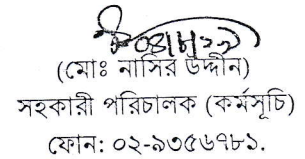 (মোঃ নাসির উদ্দীন)
সহকারী পরিচালক (কর্মসূচি)
ফোন: ০২-৯৩৫৬৭৮১.